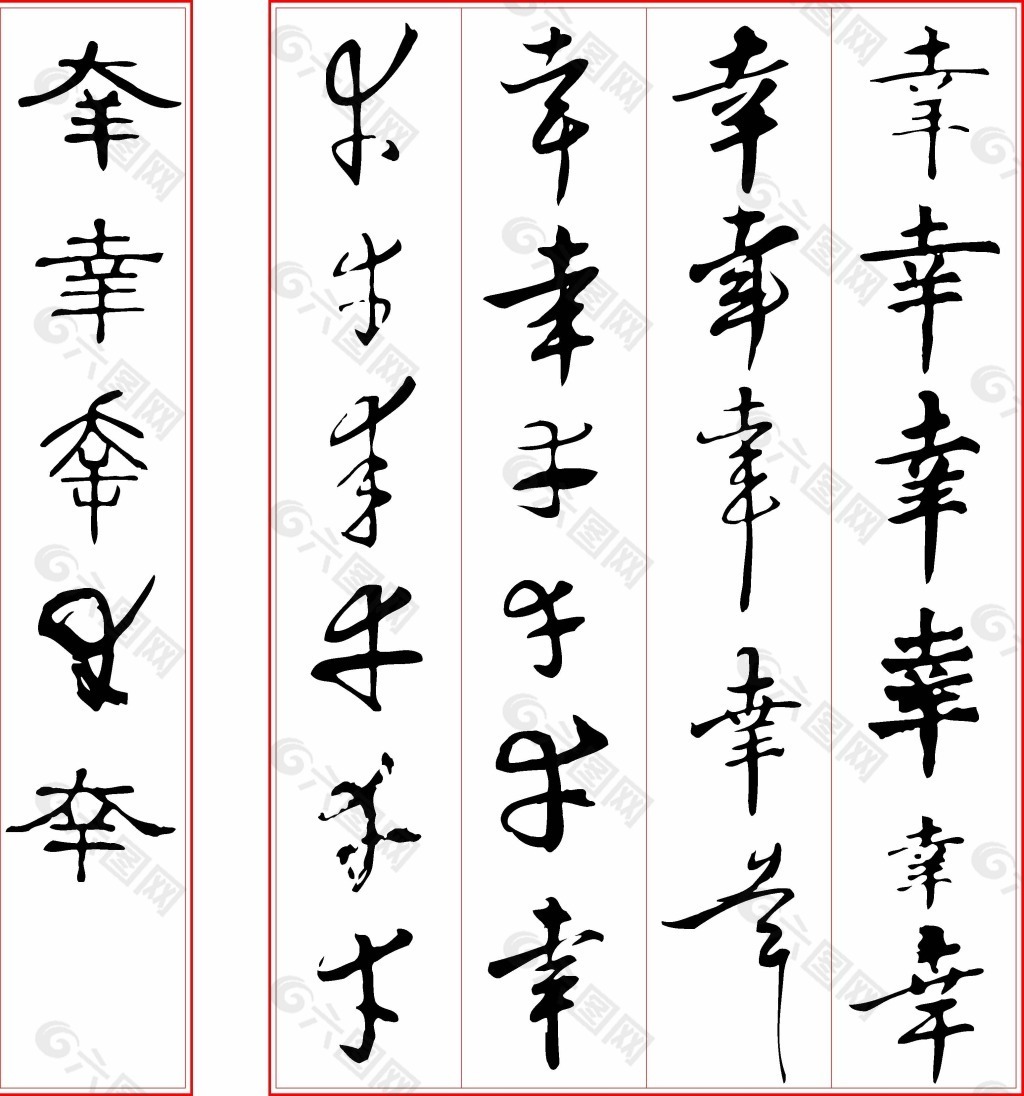 幸幸幸幸幸幸
幸幸幸幸幸
幸幸幸幸幸幸
幸幸幸幸幸幸
幸幸幸幸幸
六图网